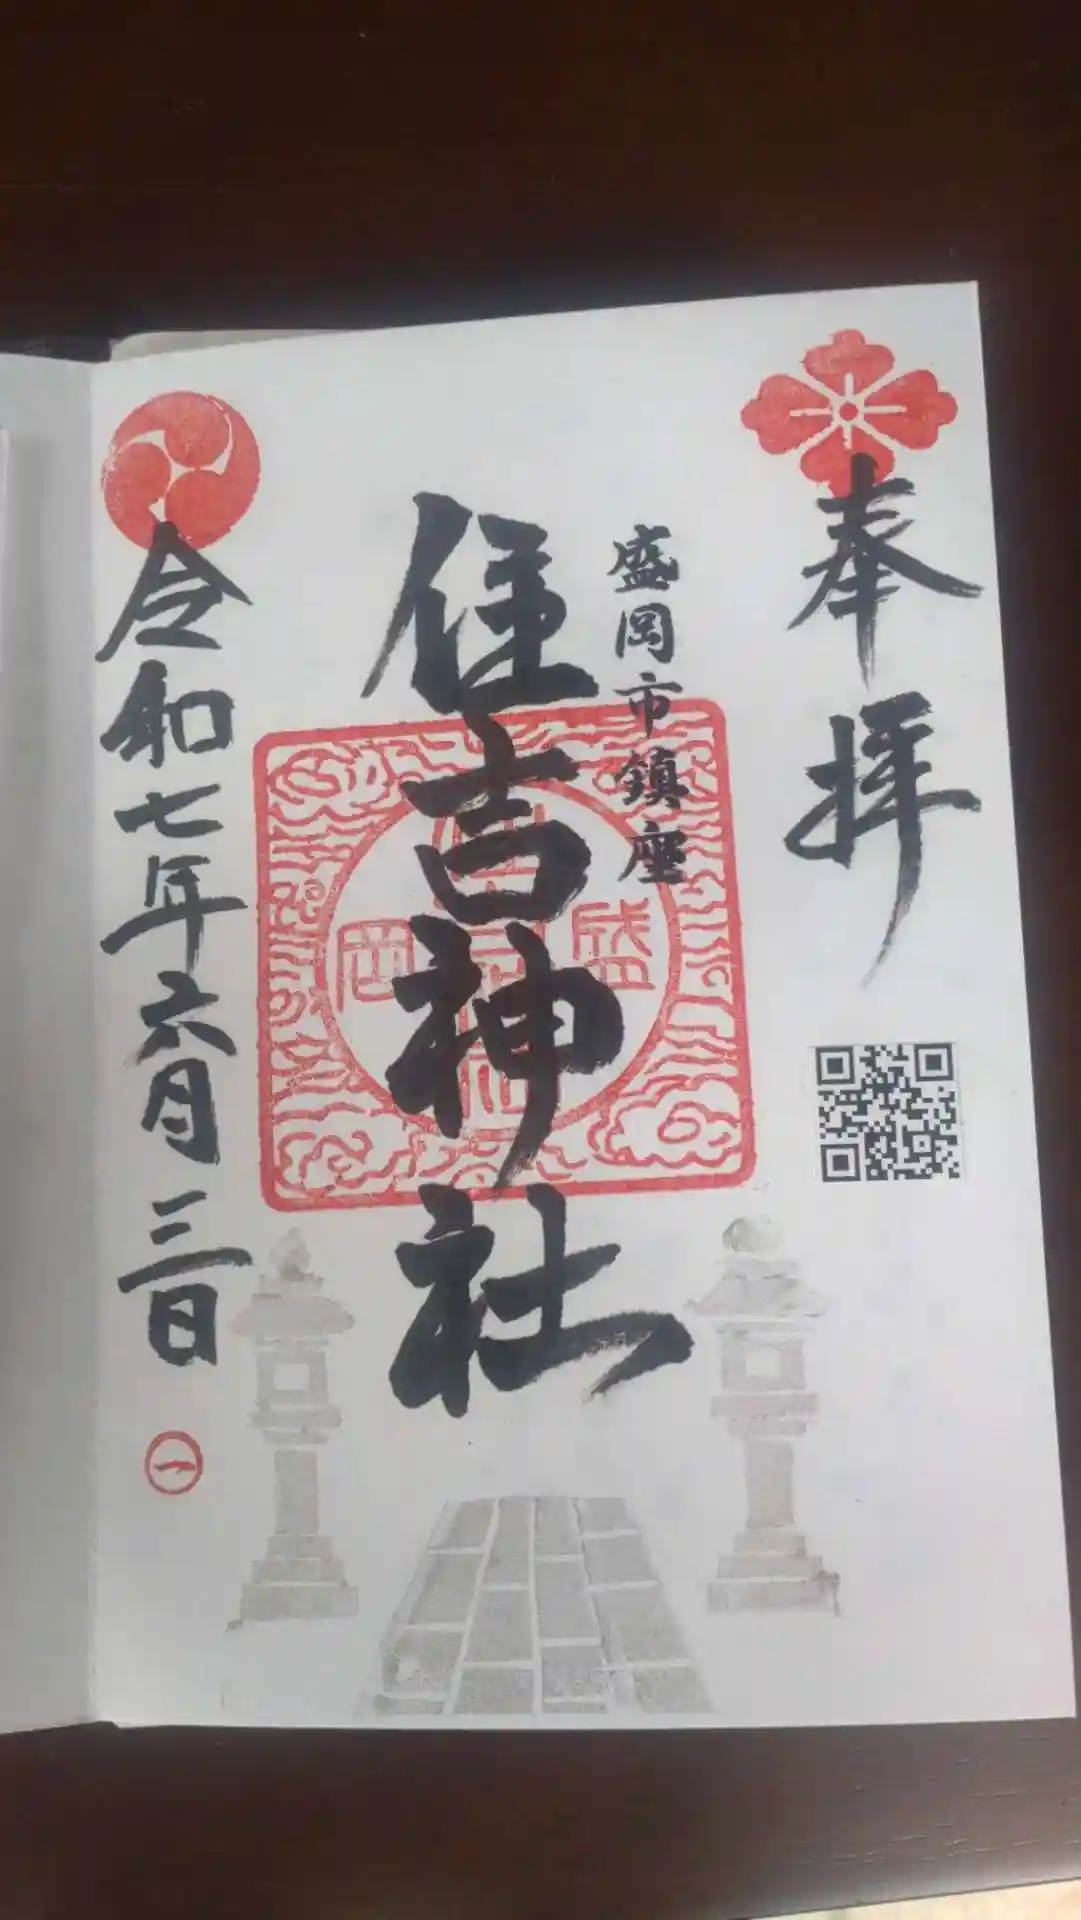 奉拝
盛岡市鎮座
住吉神社
盛岡
令和七年六月三日
一